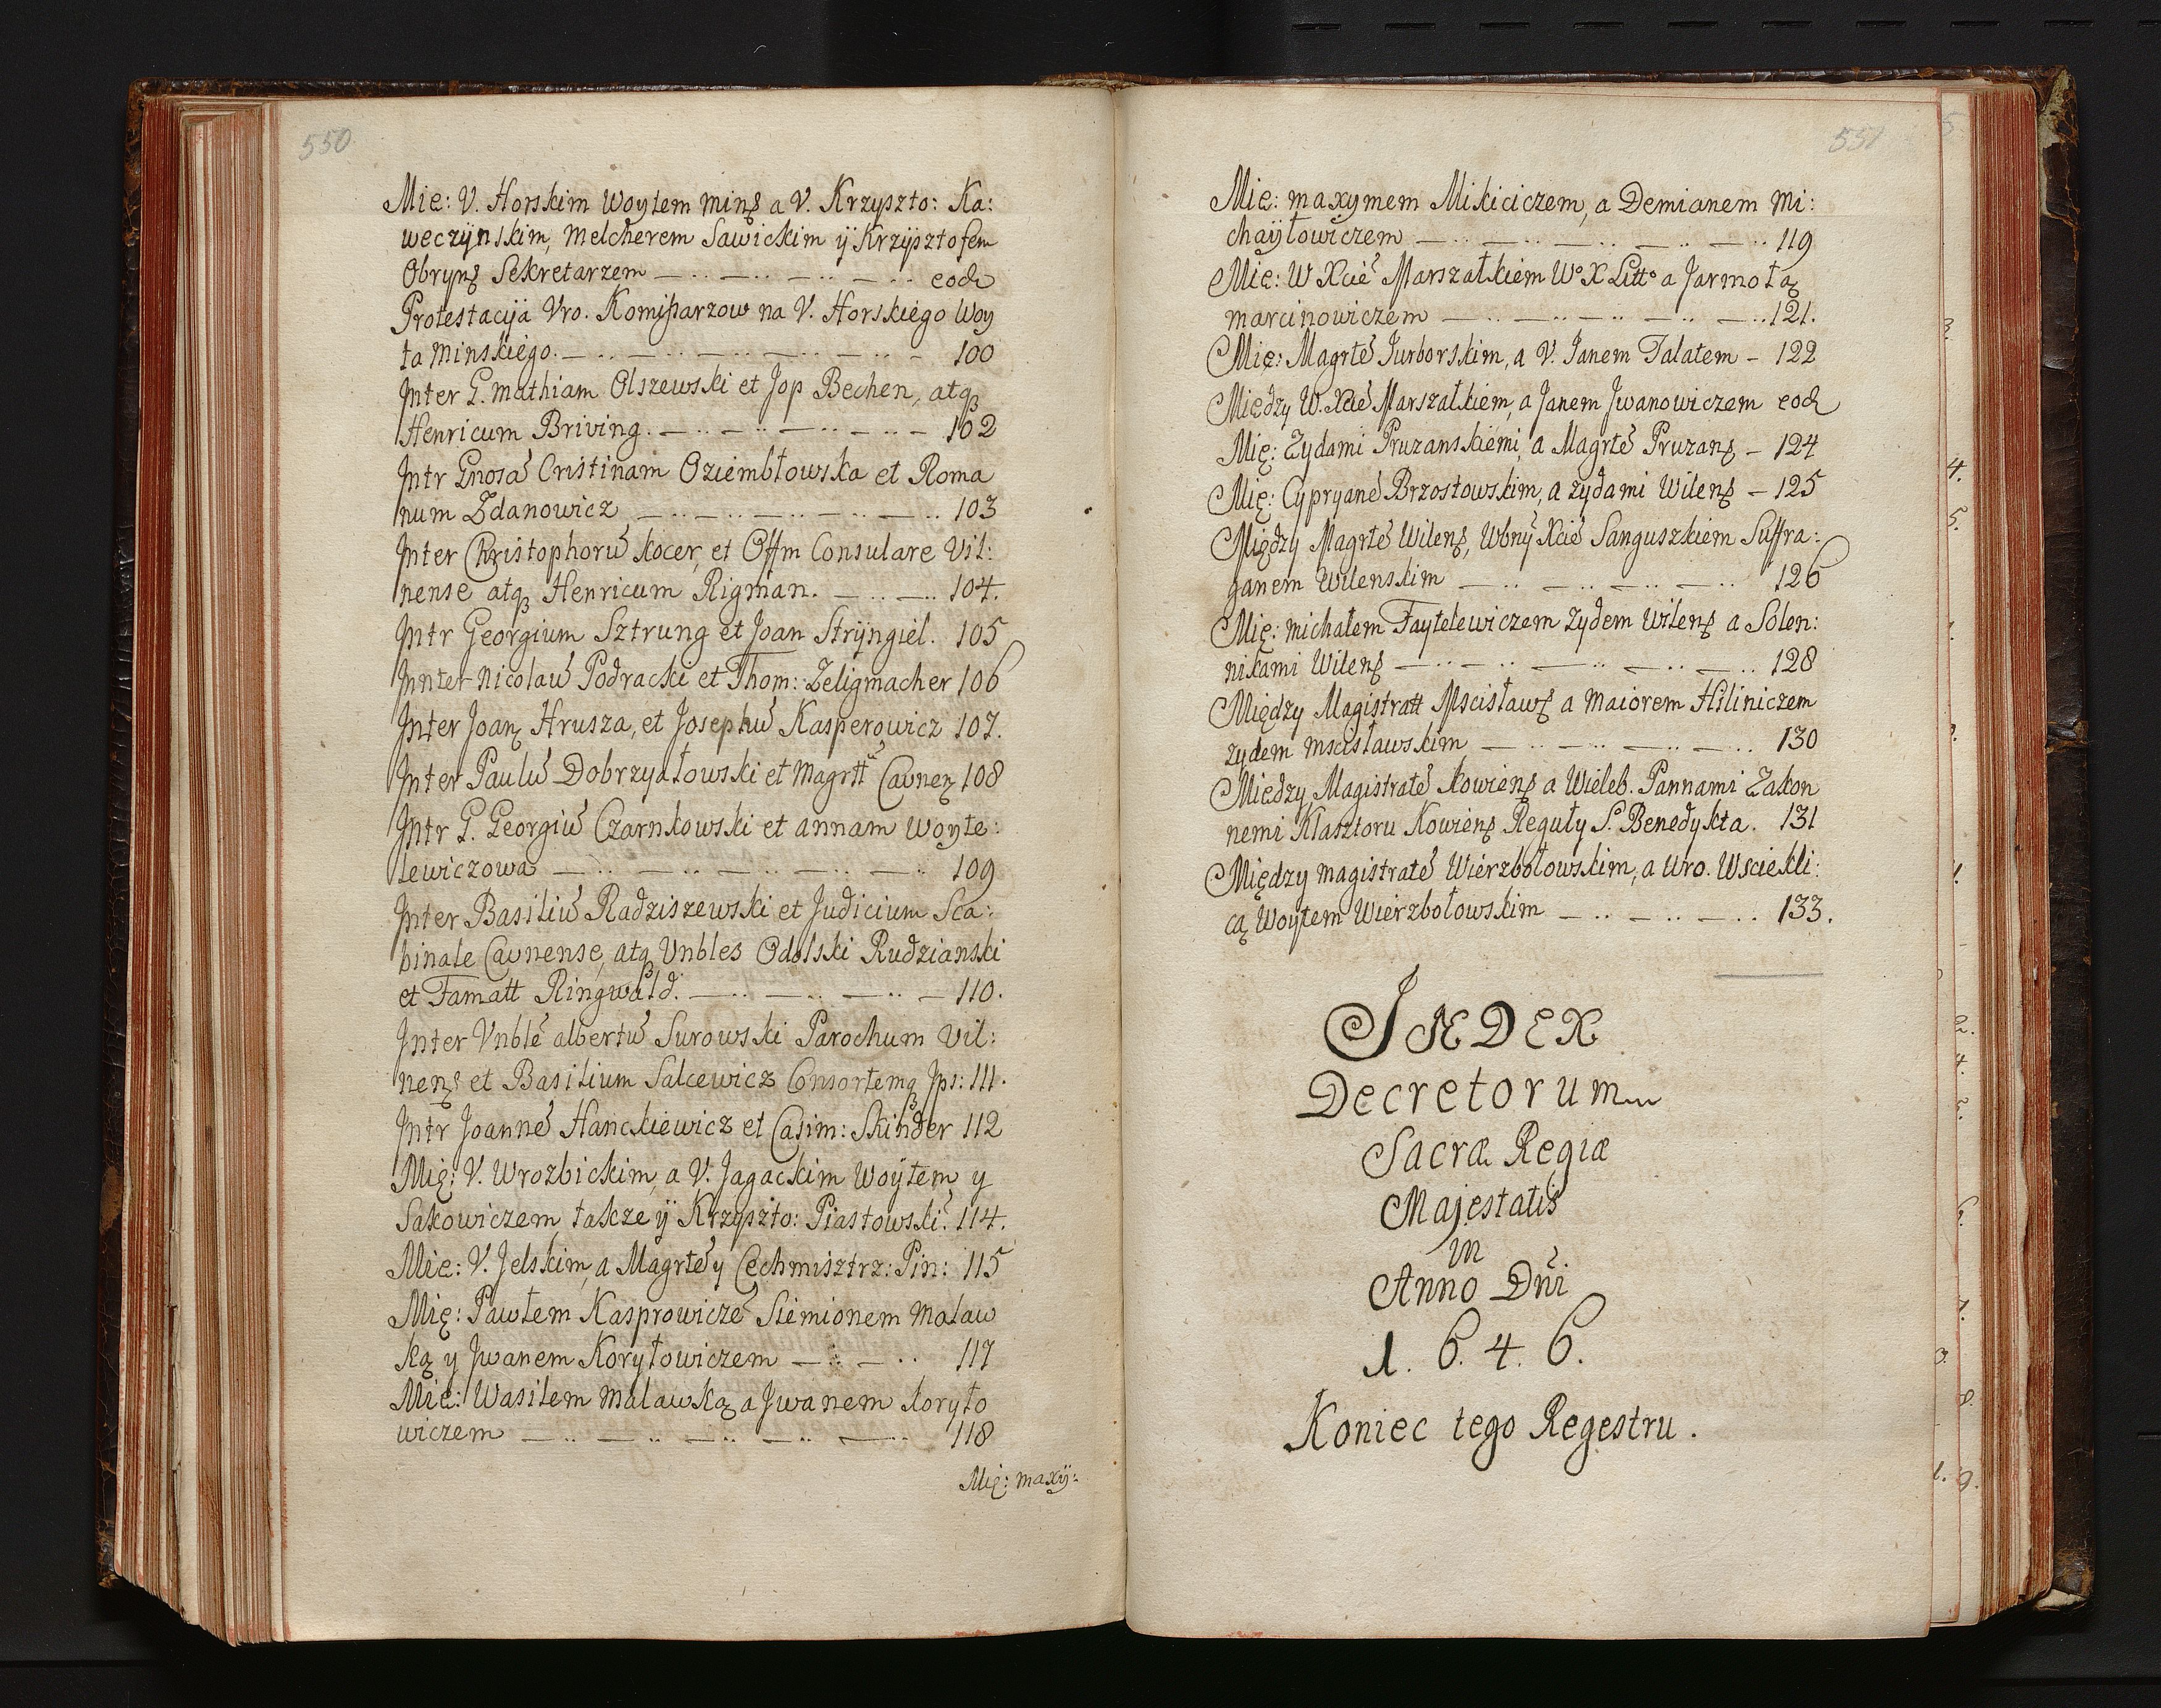 550
Mie: V. Horskim Woytem Minß a V. Krzyszto: Ka:
weczÿnskim, Melcherem Sawickim ÿ Krzÿsztofem
Obrynß Sekretarzem — .. — .. — .. — .. eod
Protestacÿa Vro. Komißarzow na V. Horskiégo Woy
ta Minskiégo. — .. — .. — .. — .. — .. — 100
Jnter G. Mathiam Olszewski et Jop Bechen, atqꝫ
Henricum Briving. — .. — .. — .. — .. — 102
Jntr Gnosā Cristinam Oziembłowska et Roma
num Zdanowicz — .. — .. — .. — .. — .. 103
Jnter Christophorū Kocer, et Offm Consulare Vil:
nense atqꝫ Henricum Rigman. — .. — .. 104.
Jntr Georgium Sztrung et Joan Strÿngiel. 105
Jnnter Nicolaū Podracki et Thom: Zeligmacher 106
Jnter Joanꝫ Hrusza, et Josephū Kasperowicz 107.
Jnter Paulū Dobrzyałowski et Magrtt Caunenꝫ 108
Jntr G. Georgiū Czarnkowski et Annam Woyte:
lewiczowa — .. — .. — .. — .. — .. 109
Jnter Basiliū Radziszewski et Judicium Sca:
binale Caunense, atqꝫ Vnbles Odolski Rudzianski
et Famatt Ringwald. — .. — .. — .. — 110.
Jnter Vnblē Albertū Surowski Parochum Vil:
nenß et Basilium Salcewicz Consortemqꝫ Jps: 111.
Jntr Joannē Hanckiewicz et Casim: Skinder 112
Mię: V. Wrozbickim, a V. Jagackim Woÿtem y
Sakowiczem, takze ÿ Krzyszto: Piastowski: 114.
Mie: V. Jelskim, a Magrtē y Cechmisztrz: Pin: 115
Mię: Pawłem Kasprowiczē Siemionem Malaw
ką y Jwanem Koryłowiczem — .. — .. 117
Mie: Wasilem Malawką a Jwanem Koryło
wiczem — .. — .. — .. — .. — .. 118
Mię: maxÿ:
551
Mie: Maxymem Mikiciczem, a Demianem Mi:
chaÿłowiczem — .. — .. — .. — .. — .. 119
Mie: W Xciē Marszałkiem Wo X Litto a Jarmołą
Marcinowiczem — .. — .. — .. — .. — .. 121.
Mię: Magrtē Jurborskim, a V. Janem Talatem – 122
Między W. Xciē Marszałkiem, a Janem Jwanowiczem eod
Mię: Zydami Pruzanskiemi, a Magrtē Pruzanß – 124
Mię: Cypryanē Brzostowskim, a zydami Wilenß – 125
Między Magrtē Wilenß, Wbnÿ Xciē Sanguszkiem Suffra:
ganem Wilenskim — .. — .. — .. — .. 126
Mię: Michałem Faytelewiczem Zydem Wilenß a Solen:
nikami Wilenß — .. — .. — .. — .. — .. 128
Między Magistratt Mscisławß a Maiorem Hiliniczem
zydem Mscisławskim — .. — .. — .. — .. 130
Między Magistratē Kowienß a Wieleb. Pannami Zakon
nemi Klasztoru Kowienß Reguły S. Benedykta. 131
Między Magistratē Wierzbołowskim, a Uro. Wscickli:
cą Woytem Wierzbołowskim — .. — .. — .. 133.
INDEX
Decretorum
Sacræ Regiæ
Majestatis
in
Anno Dni
1. 6. 4. 6.
Koniec tego Regestru.